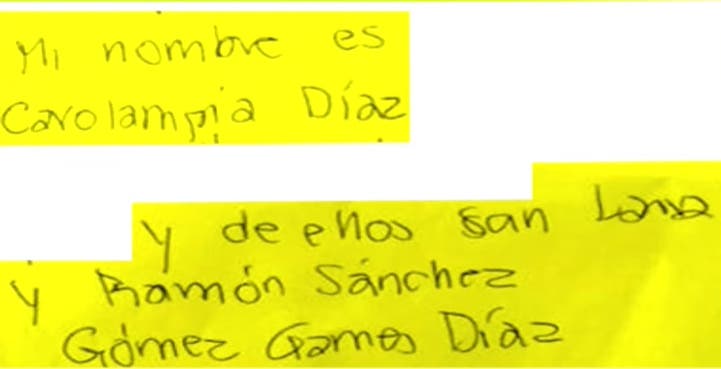 Mi nombre es
Carolampia Díaz
y de ellos san Lama
y Ramón Sánchez
Gómez Games Díaz